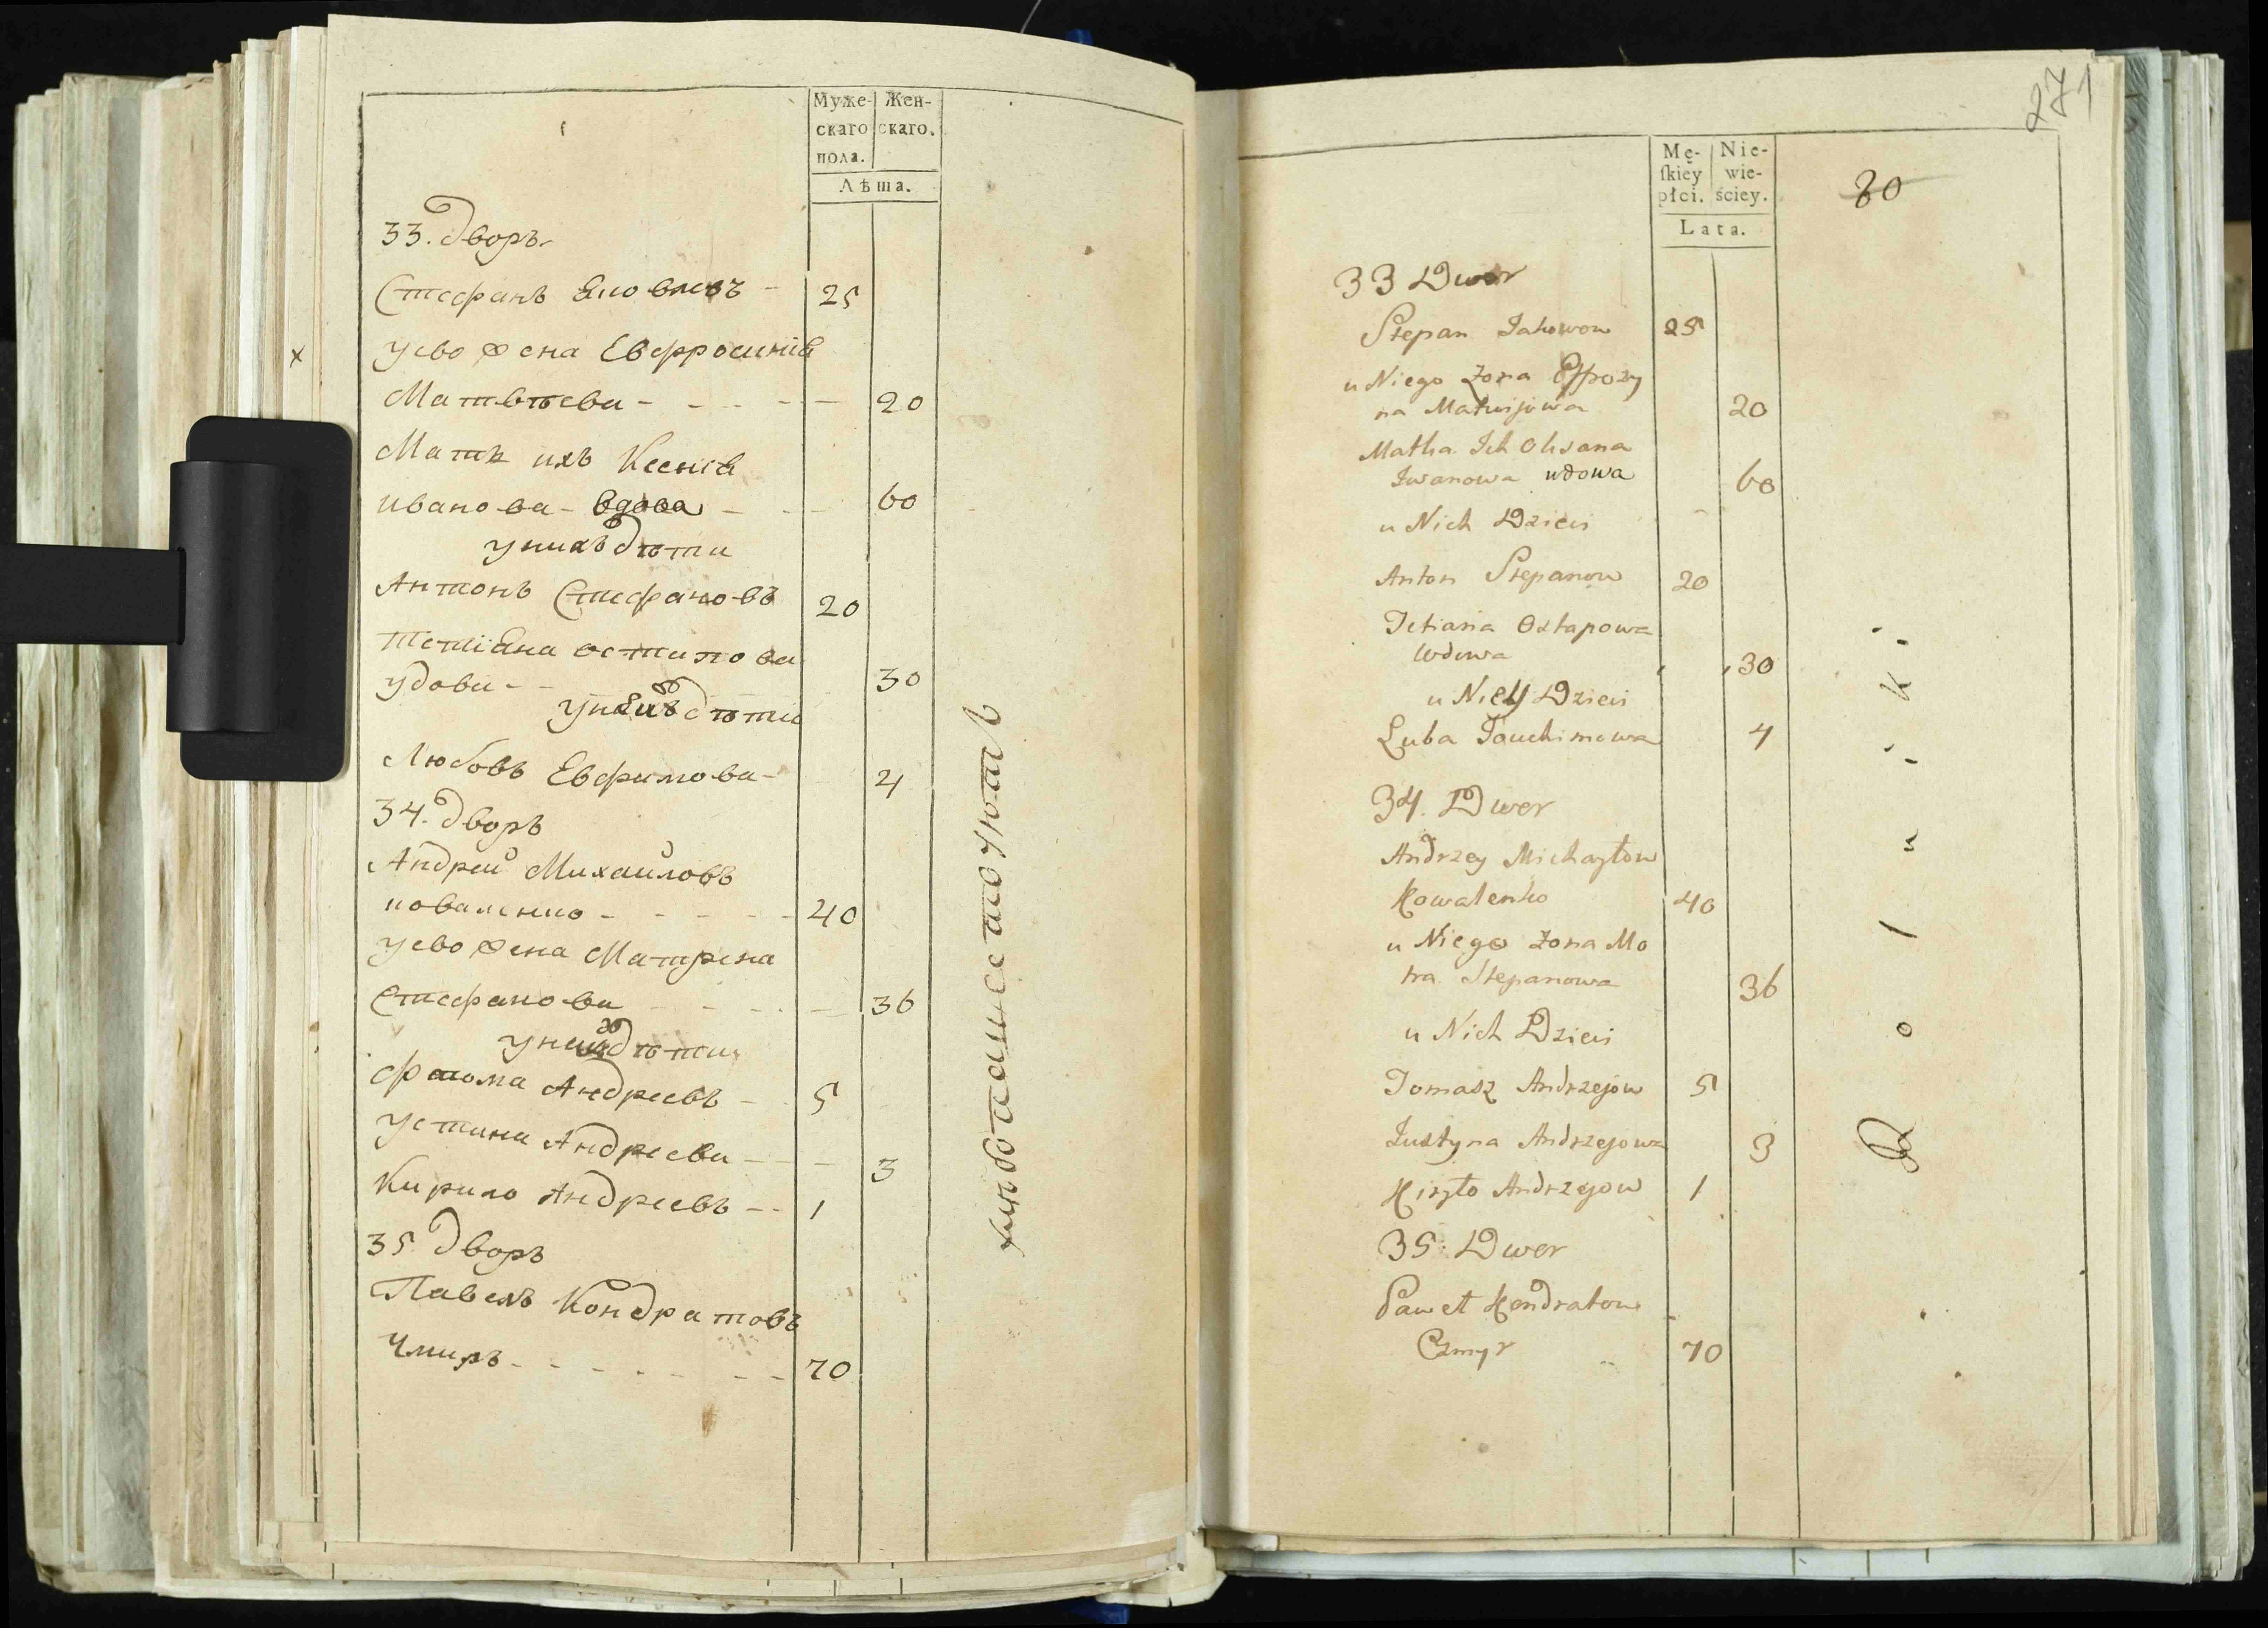 Муже-
скаго
пола.
Жен-
скаго.
Лѣта.
33. дворъ
Стефанъ Яковлевъ - 25
х
у ево жена Евфросиніа
Матвѣева - 20
Мать ихъ Ксеніа
иванова - вдова - 60
у нихъ дѣти
Антонъ Стефановъ 20
Тетіана остапова
удова - 30
дѣти
Любовъ Евфимова - 4
34. дворъ
Андрей Михайловъ
коваленко - 40
у ево жена Матрена
Стефанова 36
у нихъ дѣти
фтома Андреевъ - 5
устина Андреева - 3
Кирило Андреевъ - - 1
35 дворъ
Павелъ Кондратовъ
Чмиръ - 70
271
80
Mę-
ſkiey
płci.
Nie-
wie-
ściey.
Lata.
33 Dwor
Stepan Jakowow 25
u Niego Żona Effrozy
na Matwijowa 20
Matka Ich Oksana
Iwanowa wdowa 60
u Nich Dzieci
Anton Stepanow 20
Tetiana Ostapowa
Wdowa 30
u Niey Dzieci
Luba Jouchimowa 4
34. Dwor
Andrzey Michayłow
Kowalenko 40
u Niego Żona Mo
tra Stepanowa 36
u Nich Dzieci
Tomasz Andrzejow 5
Justyna Andrzejowa 3
Kiryło Andrzejow 1
35. Dwor
Paweł Kondratow
Czmyr 70